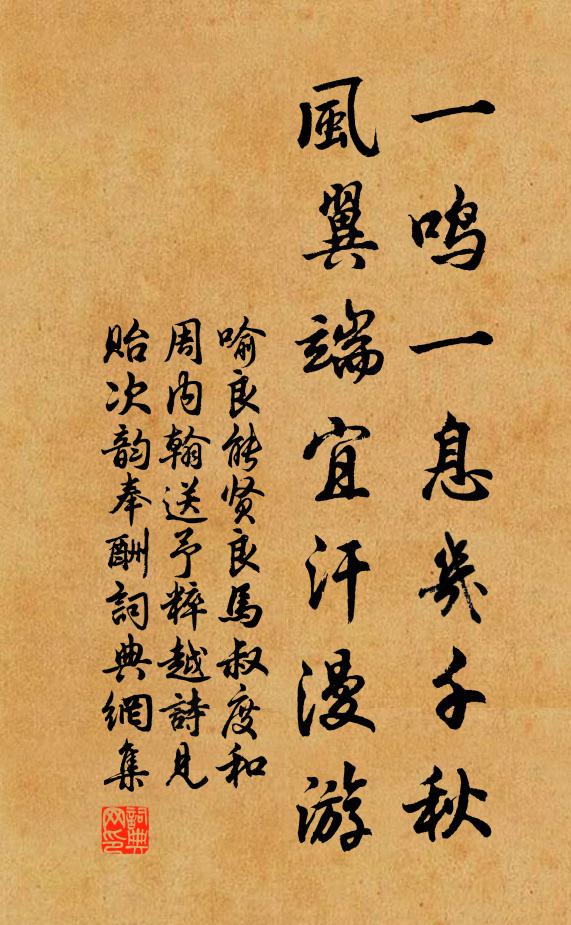 一鸣一息幾千秋
風翼端宜汗漫游
喻良能贤良馬叔度和
周内翰送予粹越詩見
贻次韵奉酬詞典網集
詞典网印